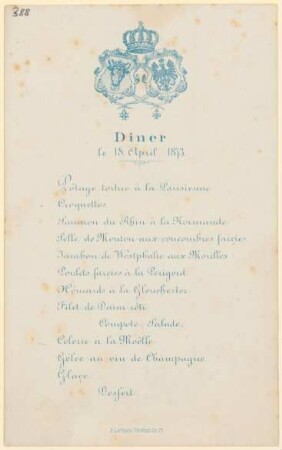 388
Diner
le 18. April 1873.
Potage tortue à la Parisienne
Croquettes
Saumon du Rhin à la Normande
Selle de Mouton aux concombres farçies
Jambon de Westphalie aux Morilles
Poulets farçies à la Perigord
Hômards à la Glouchester
Filet de Daim rôti
Compote, Salade,
Celerie à la Moëlle
Gelée au vin de Champagne
Glace
Dessert